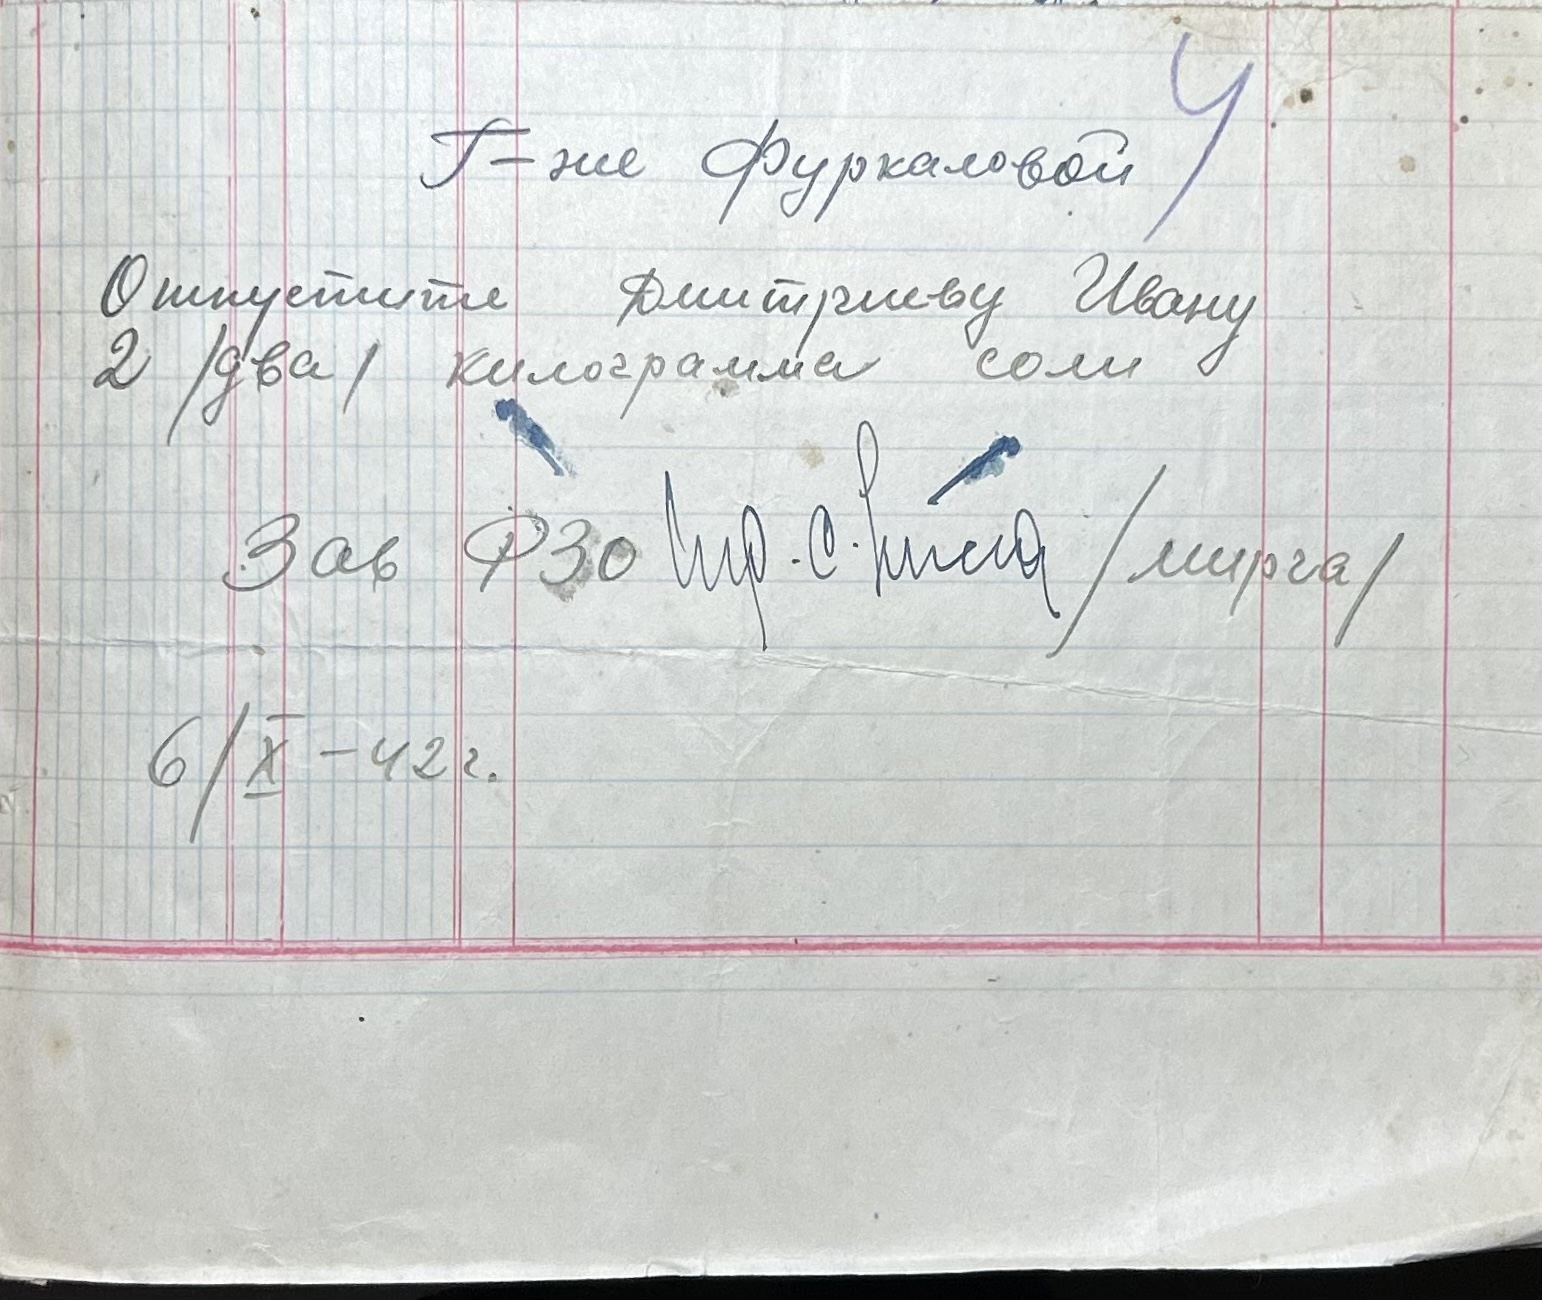 Г-же Фуркаловой
Отпустите Дмитриеву Ивану
2 /два/ килограмма соли
Зав ФЗО /мирга/
6/X-42г.